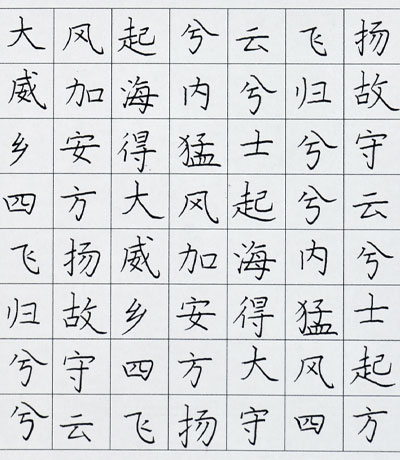 大风起兮云飞扬
威加海内兮归故
乡安得猛士兮守
四方大风起兮云
飞扬威加海内兮
归故乡安得猛士
兮守四方大风起
兮云飞扬守四方